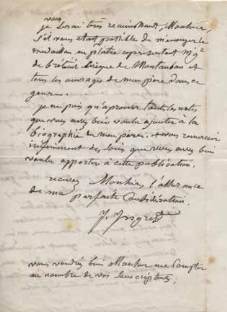 vous
je serai très reconnaissant, Monsieur
s'il vous était possible de m'envoyer le
médaillon en plâtre représentant Mgr
de Breteuil évêque de Montauban et
tous les ouvrages de mon père dans ce
genre.
je ne puis qu'approuver toutes les notes
que vous avez bien voulu ajouter à la
biographie de mon père, et vous remercier
infiniment des soins que vous avez bien
voulu apporter à cette publication.
recevez Monsieur l'assurance
de ma parfaite considération.
J. Ingres
vous voudrez bien Monsieur me compter
au nombre de vos souscripteurs.